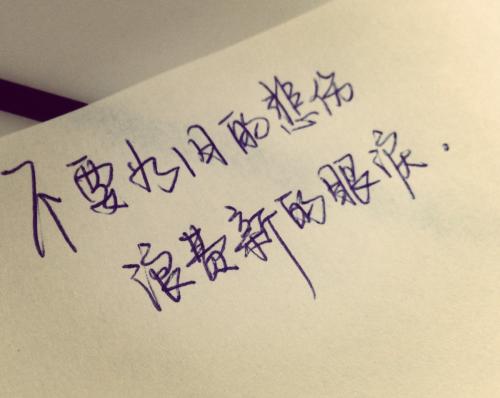 不要为旧的悲伤
浪费新的眼泪.